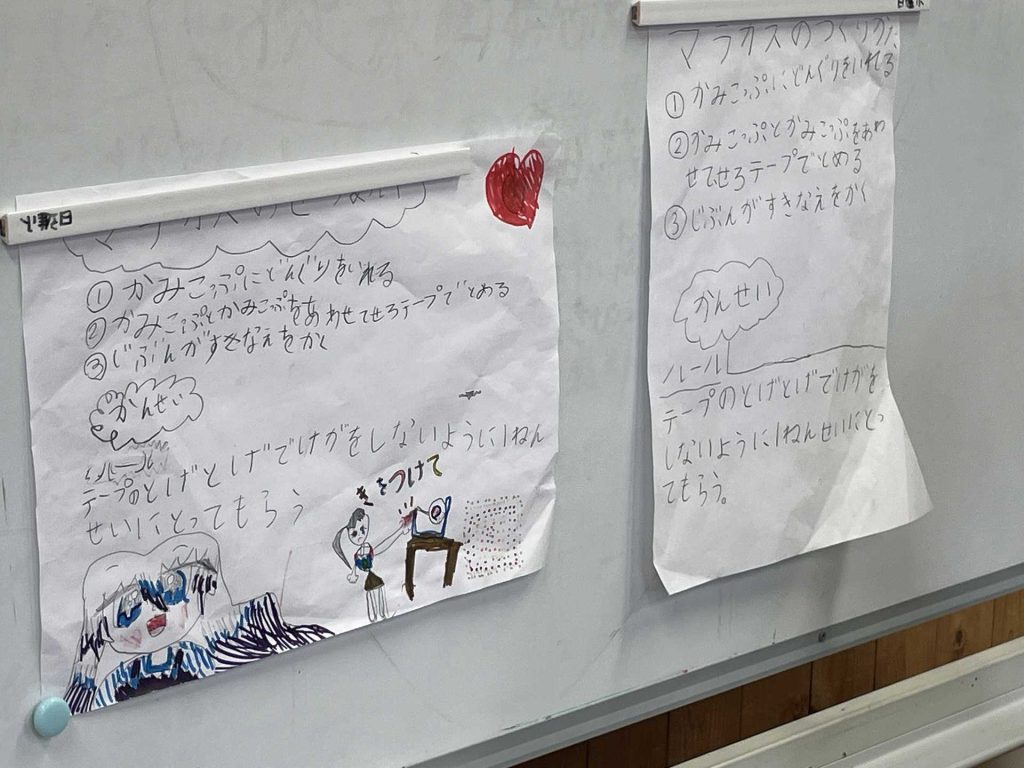 マラカスの
①かみこっぷにどんぐりをいれる
②かみこぷとかみこぷをあわせてせろテープでとめる
③じぶんがすきなえをかく
かんせい
ルール
テープのとげとげでけがをしないように1ねん
せいにとってもらう
きをつけて
マラカスのつくりかた
①かみこっぷにどんぐりをいれる
②かみこっぷとかみこっぷをあわ
せてせろテープでとめる
③じぶんがすきなえをかく
かんせい
ルール
テープのとげとげでけがを
しないように1ねんせいにとっ
てもらう。